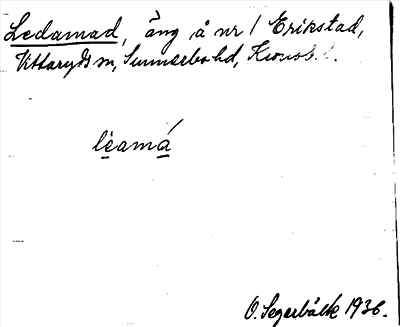 Ledamad, äng å nr 1 Erikstad,
Vittaryds sn, Sunnerbo hd, Kronob. l.
lèamá
O. Segerbäck 1936.